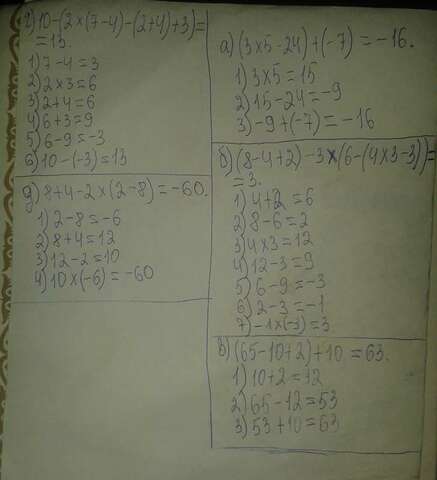 г) 10-(2×(7-4)-(2+4)+3)=
=13.
1) 7-4=3
2) 2×3=6
3) 2+4=6
4) 6+3=9
5) 6-9=-3
6) 10-(-3)=13
g) 8+4-2×(2-8)=-60.
1) 2-8=-6
2) 8+4=12
3) 12-2=10
4) 10×(-6)=-60
а) (3×5-24)+(-7)=-16.
1) 3×5=15
2) 15-24=-9
3) -9+(-7)=-16
б) (8-4+2)-3×(6-(4×3-3))=
=3.
1) 4+2=6
2) 8-6=2
3) 4×3=12
4) 12-3=9
5) 6-9=-3
6) 2-3=-1
7) -1×(-3)=3
в) (65-10+2)+10=63.
1) 10+2=12
2) 65-12=53
3) 53+10=63